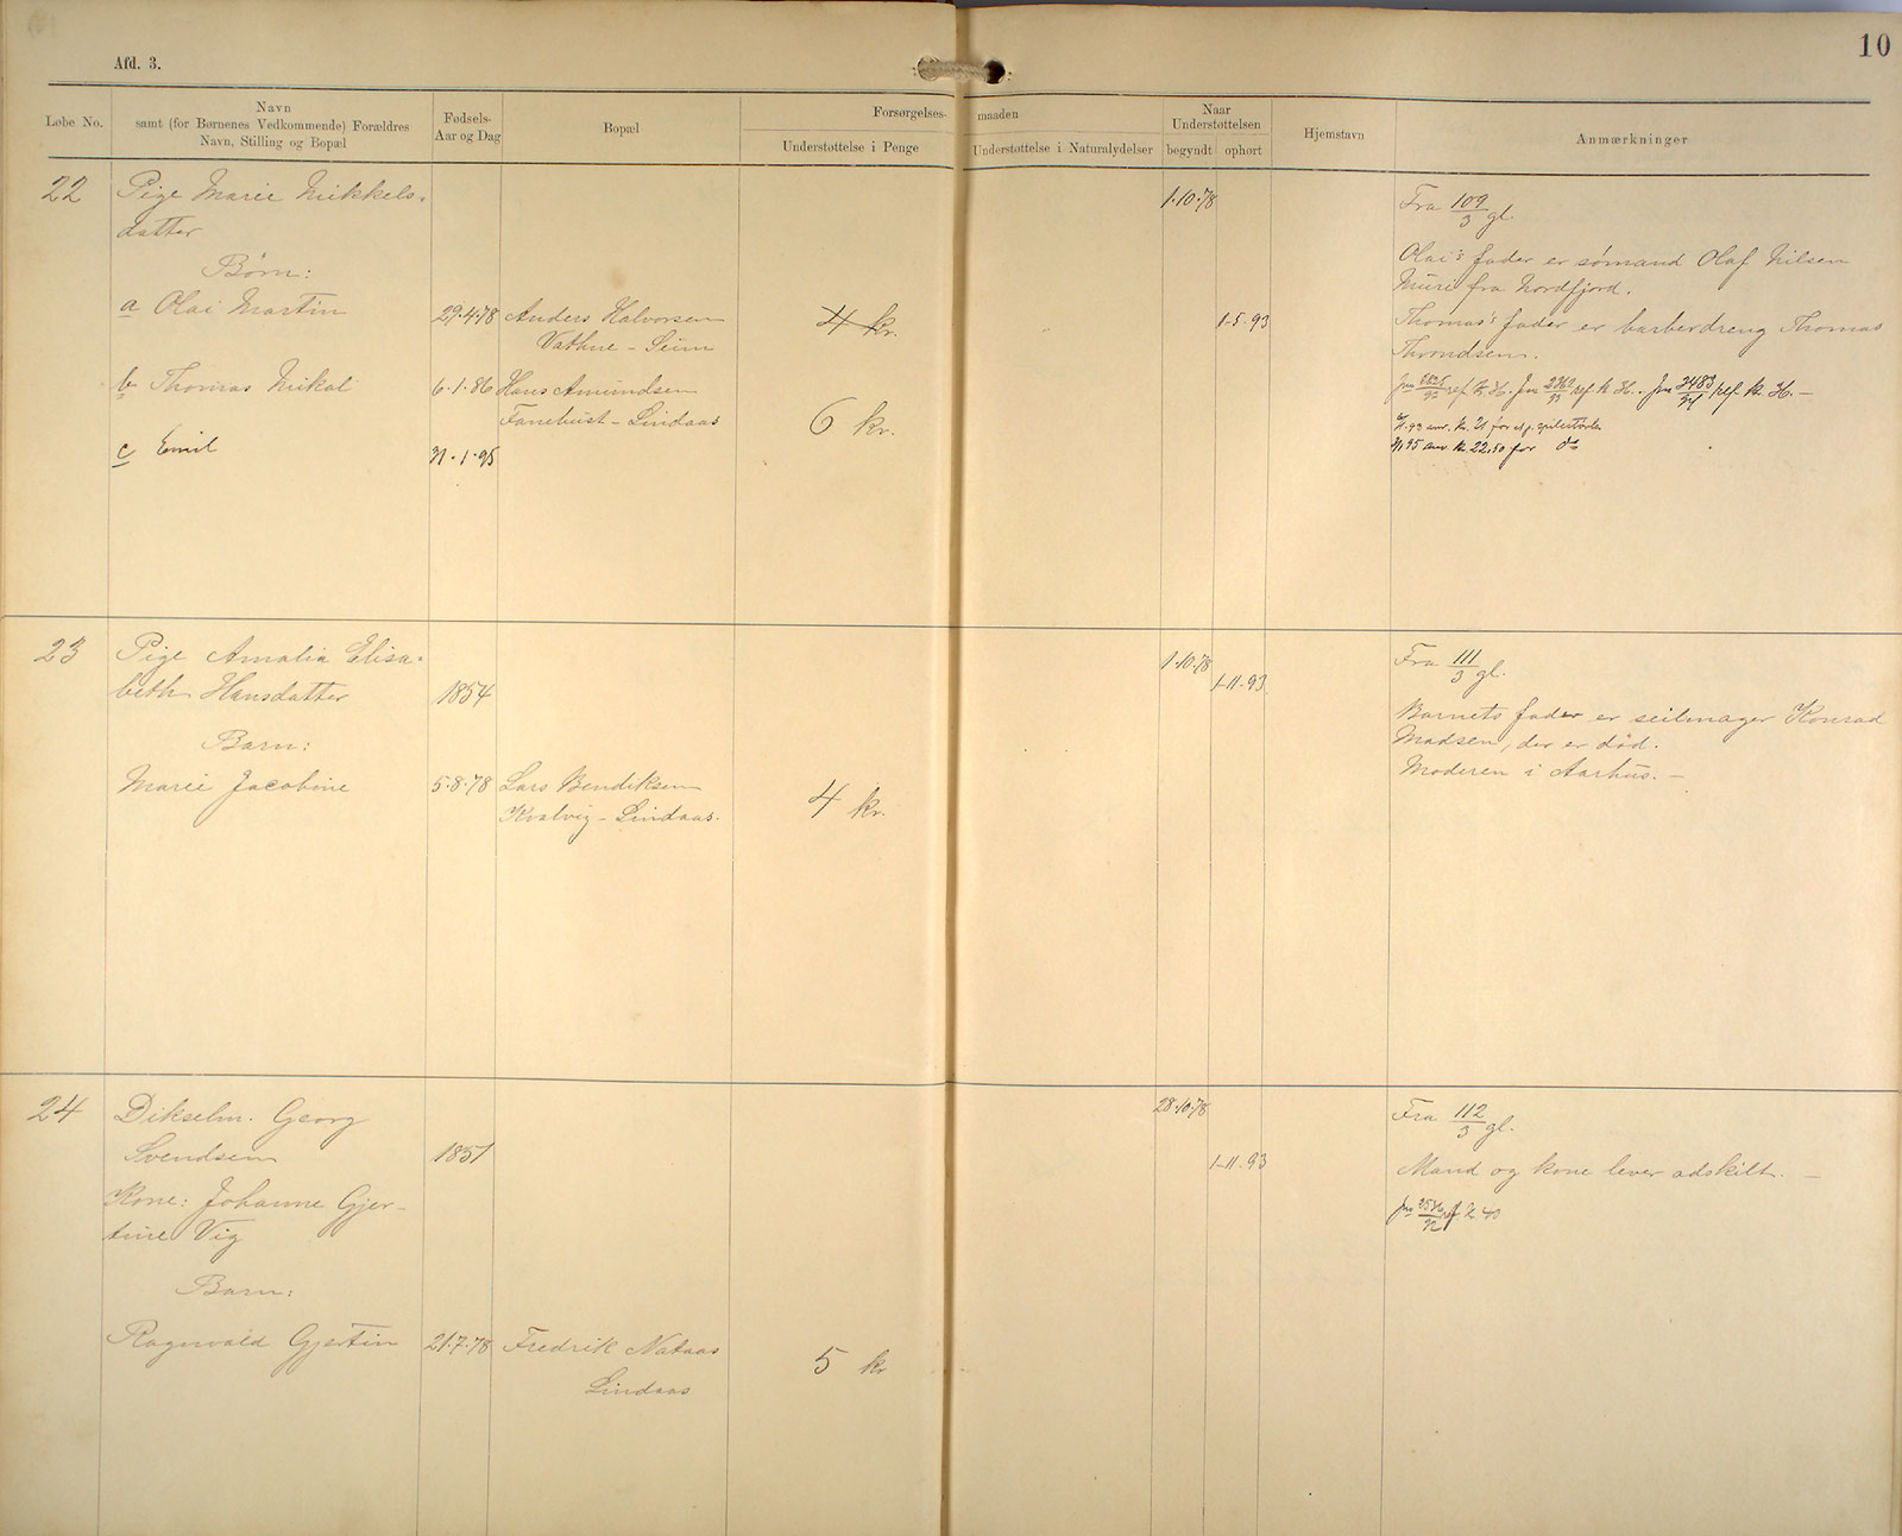 Afd. 3.
10
Løbe No.
Navn
samt (for Børnenes Vedkommende) Forældres
Navn, Stilling og Bopæl
Fødsels-
Aar og Dag
Bopæl
Forsørgelses-
maaden
Understøttelse i Penge
Understøttelse i Naturalydelser
Naar
Understøttelsen
begyndt ophørt
Hjemstavn
Anmærkninger
22 Pige Marie Mikkels- 1.10.78 Fra 109/3 gl.
datter
Børn: Olai's fader er sømand Olaf Nilsen
Muri fra Nordfjord.
a Olai Martin 29.4.78 Anders Halvorsen 4 kr. 1-5-93 Thomas's fader er barberdreng Thomas
Vathne - Seim Throndsen.
b Thomas Mikal 6.1.86 Hans Amundsen ref. K. H. 2362/93 ref. K. H. 3483/94 ref. K. H. —
Fanebust - Lindaas 6 kr. 93 anv. kr. 21 for
c Emil 31.1.95 95 anv. kr. 22,50 for do
23 Pige Amalia Elisa- 1.10.78 Fra 111/3 gl.
beth Hansdatter 1854 1-11-93
Barnets fader er seilmager Konrad
Barn: Madsen, der er död.
Marie Jacobine 5.8.78 Lars Bendiksen 4 kr. Moderen i Aarhus. —
Kvalvig - Lindaas.
24 Dikselm. Georg 28.10.78 Fra 112/3 gl.
Svendsen 1851 1-11-93 Mand og kone lever adskilt. —
Kone: Johanne Gjer- ref. K. 40
tine Vig
Barn:
Ragnvald Gjertin 21.7.78 Fredrik Nataas 5 kr
Lindaas